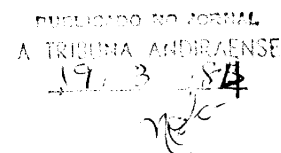 PUBLICADO NO JORNAL
A TRIBUNA ANDIRAENSE
19 / 3 / 84